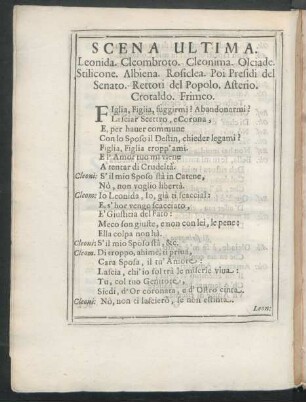 SCENA ULTIMA.
Leonida. Cleombroto. Cleonima. Olciade.
Stilicone. Albiena. Rosiclea. Poi Presidi del
Senato. Rettori del Popolo. Asterio.
Crotaldo. Frimeo.
Figlia, Figlia, fuggirmi? Abandonarmi?
Lasciar Scettro, e Corona,
E, per hauer commune
Con lo Sposo il Destin, chieder legami?
Figlia, Figlia tropp'ami.
E l'Amor tuo mi viene
A tentar di Crudeltà.
Cleoni: S'il mio Sposo stà in Catene,
Nò, non voglio libertà.
Cleom: Io Leonida, Io, già ti scacciai:
E s'hor vengo scacciato,
E' Giustitia del Fato:
Meco son giuste, e non con lei, le pene:
Ella colpa non hà.
Cleoni: S'il mio Sposo stà, &c.
Cleom. Di troppo, ahimè, ti priua,
Cara Sposa, il tu' Amore:
Lascia, ch'io sol trà le miserie viua:
Tu, col tuo Genitore,
Siedi, d'Or coronata, e d'Ostro cinta.
Cleoni: Nò, non ti lascierò, se non estinta.
Leon: